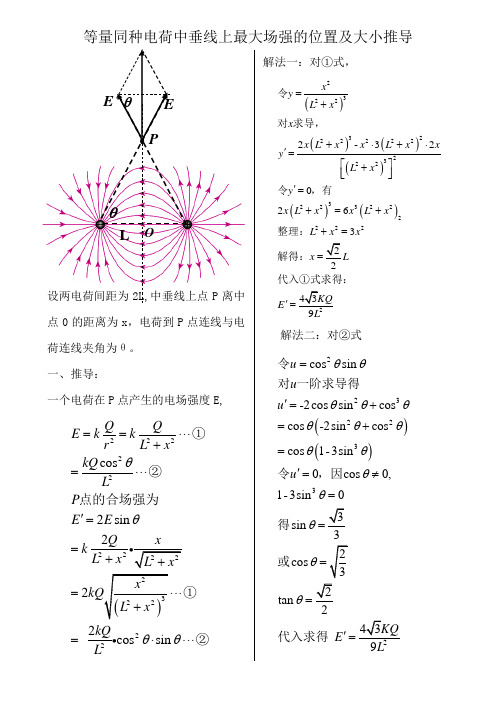 等量同种电荷中垂线上最大场强的位置及大小推导
E θ E
P
θ
L O
设两电荷间距为 2L,中垂线上点 P 离中
点 O 的距离为 x，电荷到 P 点连线与电
荷连线夹角为 θ。
一、推导:
一个电荷在 P 点产生的电场强度 E,
E = k Q/r² = k Q/(L² + x²) ⋯①
= kQcos²θ/L² ⋯②
P点的合场强为
E′ = 2E sinθ
= k 2Q/(L² + x²) • x/√(L² + x²)
= 2kQ√(x²/(L² + x²)³) ⋯①
= 2kQ/L² •cos²θ⋅sinθ⋯②
解法一：对①式，
令y = x²/(L² + x²)³
对x求导，
y′ = (2x(L² + x²)³ - x²⋅3(L² + x²)²⋅2x)/[(L² + x²)³]²
令y′ = 0，有
2x(L² + x²)³ = 6x³(L² + x²)₂
整理：L² + x² = 3x²
解得：x = √2/2 L
代入①式求得：
E′ = 4√3KQ/9L²
解法二：对②式
令u = cos²θ sinθ
对u一阶求导得
u′ = -2cosθ sin²θ + cos³θ
= cosθ(-2sin²θ + cos²θ)
= cosθ(1-3sin³θ)
令u′ = 0，因cosθ ≠ 0,
1-3sin³θ = 0
得sinθ = √3/3
或cosθ = √(2/3)
tanθ = √2/2
代入求得 E′ = 4√3KQ/9L²